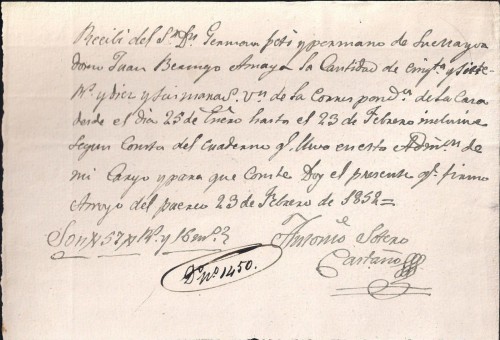 Recibi del Sr. Dn. Germova peti y por mano de su Mayor
domo Juan Bermejo Amaya la Cantidad de cinqta. y siete
Rs. y diez y seis maras. Vn. de la Correspondca. de la Casa
desde el dia 25 de Enero hasta el 23 de Febrero inclusive
Segun Consta del Cuaderno q. llevo en esta Admon. de
mi Cargo y para que Conste Doy el presente q. firmo
Arroyo del puerco 23 de Febrero de 1852=
Son # 57 # Rs. y 16 ms.
Antonio Sotero
Castaño
Do. no. 1450.